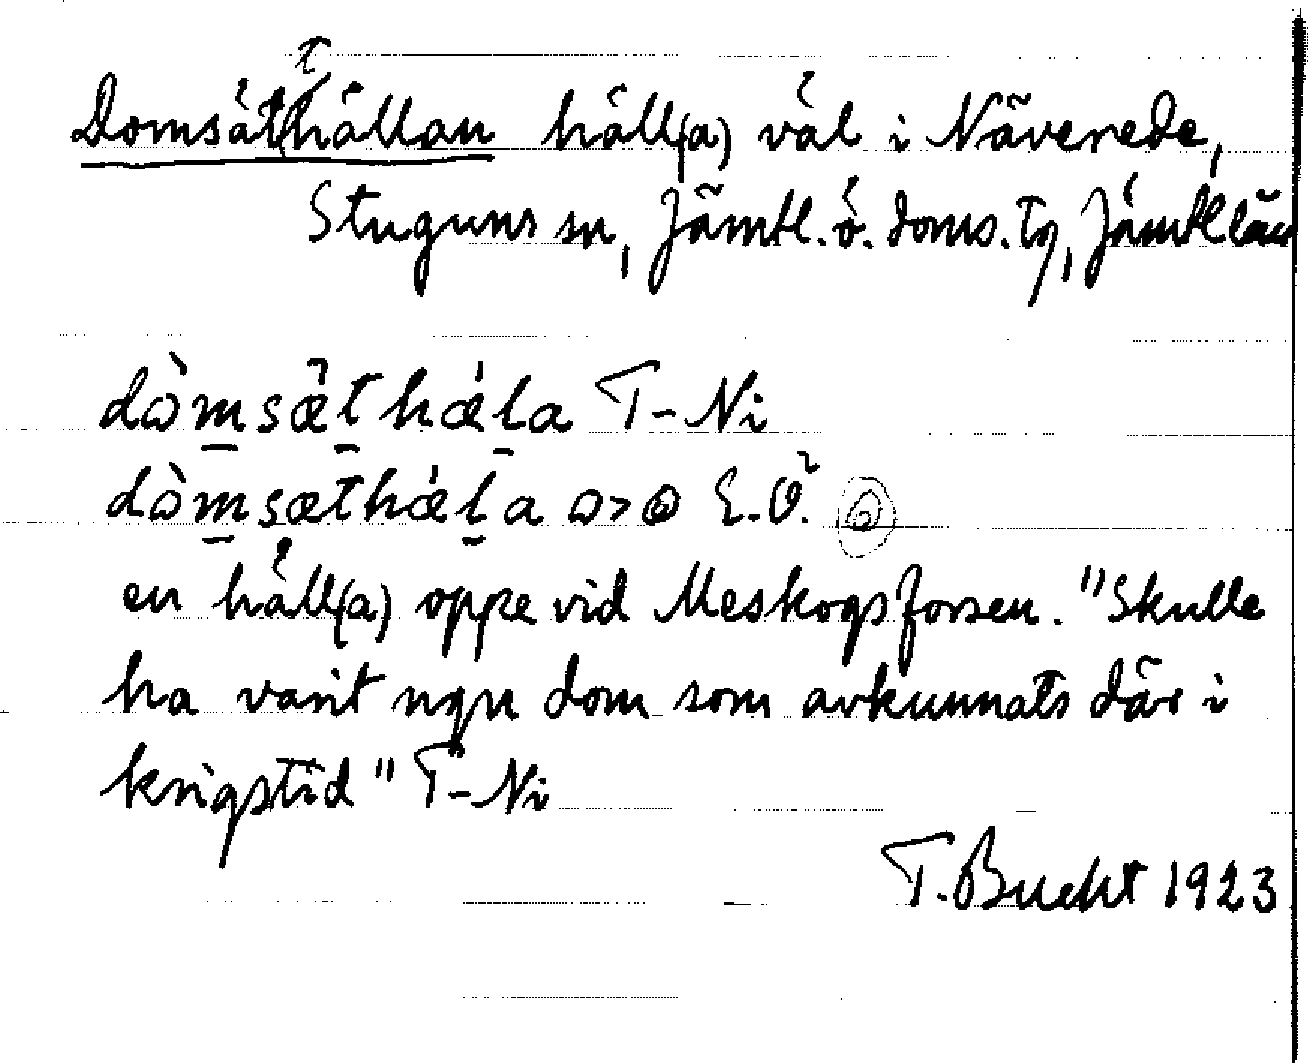 t
Domsäthällan häll(a) väl i Näverede,
Stuguns sn, Jämtl. ö. doms. tg, Jämtl län
dòm̲sæ̀t̲hǽl̲a T-Ni
dòm̲sæthǽl̲a ɷ>ꙩ E.O.
en häll(a) oppe vid Meskogsforsen. "Skulle
ha varit ngn dom som avkunnats där i
krigstid" T-Ni
T. Bucht 1923